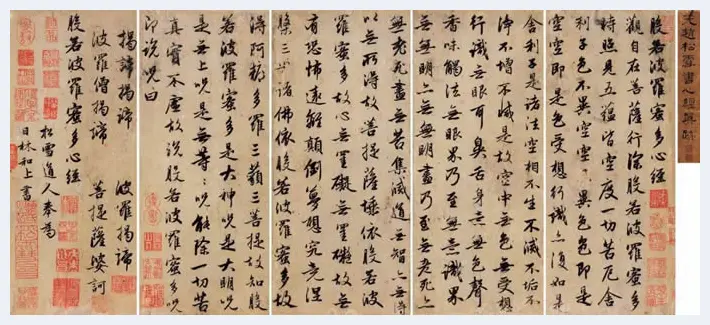 元趙松雪書心經真蹟
般若波羅蜜多心經
觀自在菩薩行深般若波羅蜜多
時照見五蘊皆空度一切苦厄舍
利子色不異空空不異色色即是
空空即是色受想行識亦復如是
舍利子是諸法空相不生不滅不垢不
淨不增不減是故空中無色無受想
行識無眼耳鼻舌身意無色聲
香味觸法無眼界乃至無意識界
無無明亦無無明盡乃至無老死亦
無老死盡無苦集滅道無智亦無得
以無所得故菩提薩埵依般若波
羅蜜多故心無罣礙無罣礙故無
有恐怖遠離顛倒夢想究竟涅
槃三世諸佛依般若波羅蜜多故
得阿耨多羅三藐三菩提故知般
若波羅蜜多是大神呪是大明呪
是無上呪是無等等呪能除一切苦
真實不虛故說般若波羅蜜多呪
即說呪曰
揭諦揭諦 波羅揭諦
波羅僧揭諦 菩提薩婆訶
般若波羅蜜多心經
松雪道人奉為
日林和上書